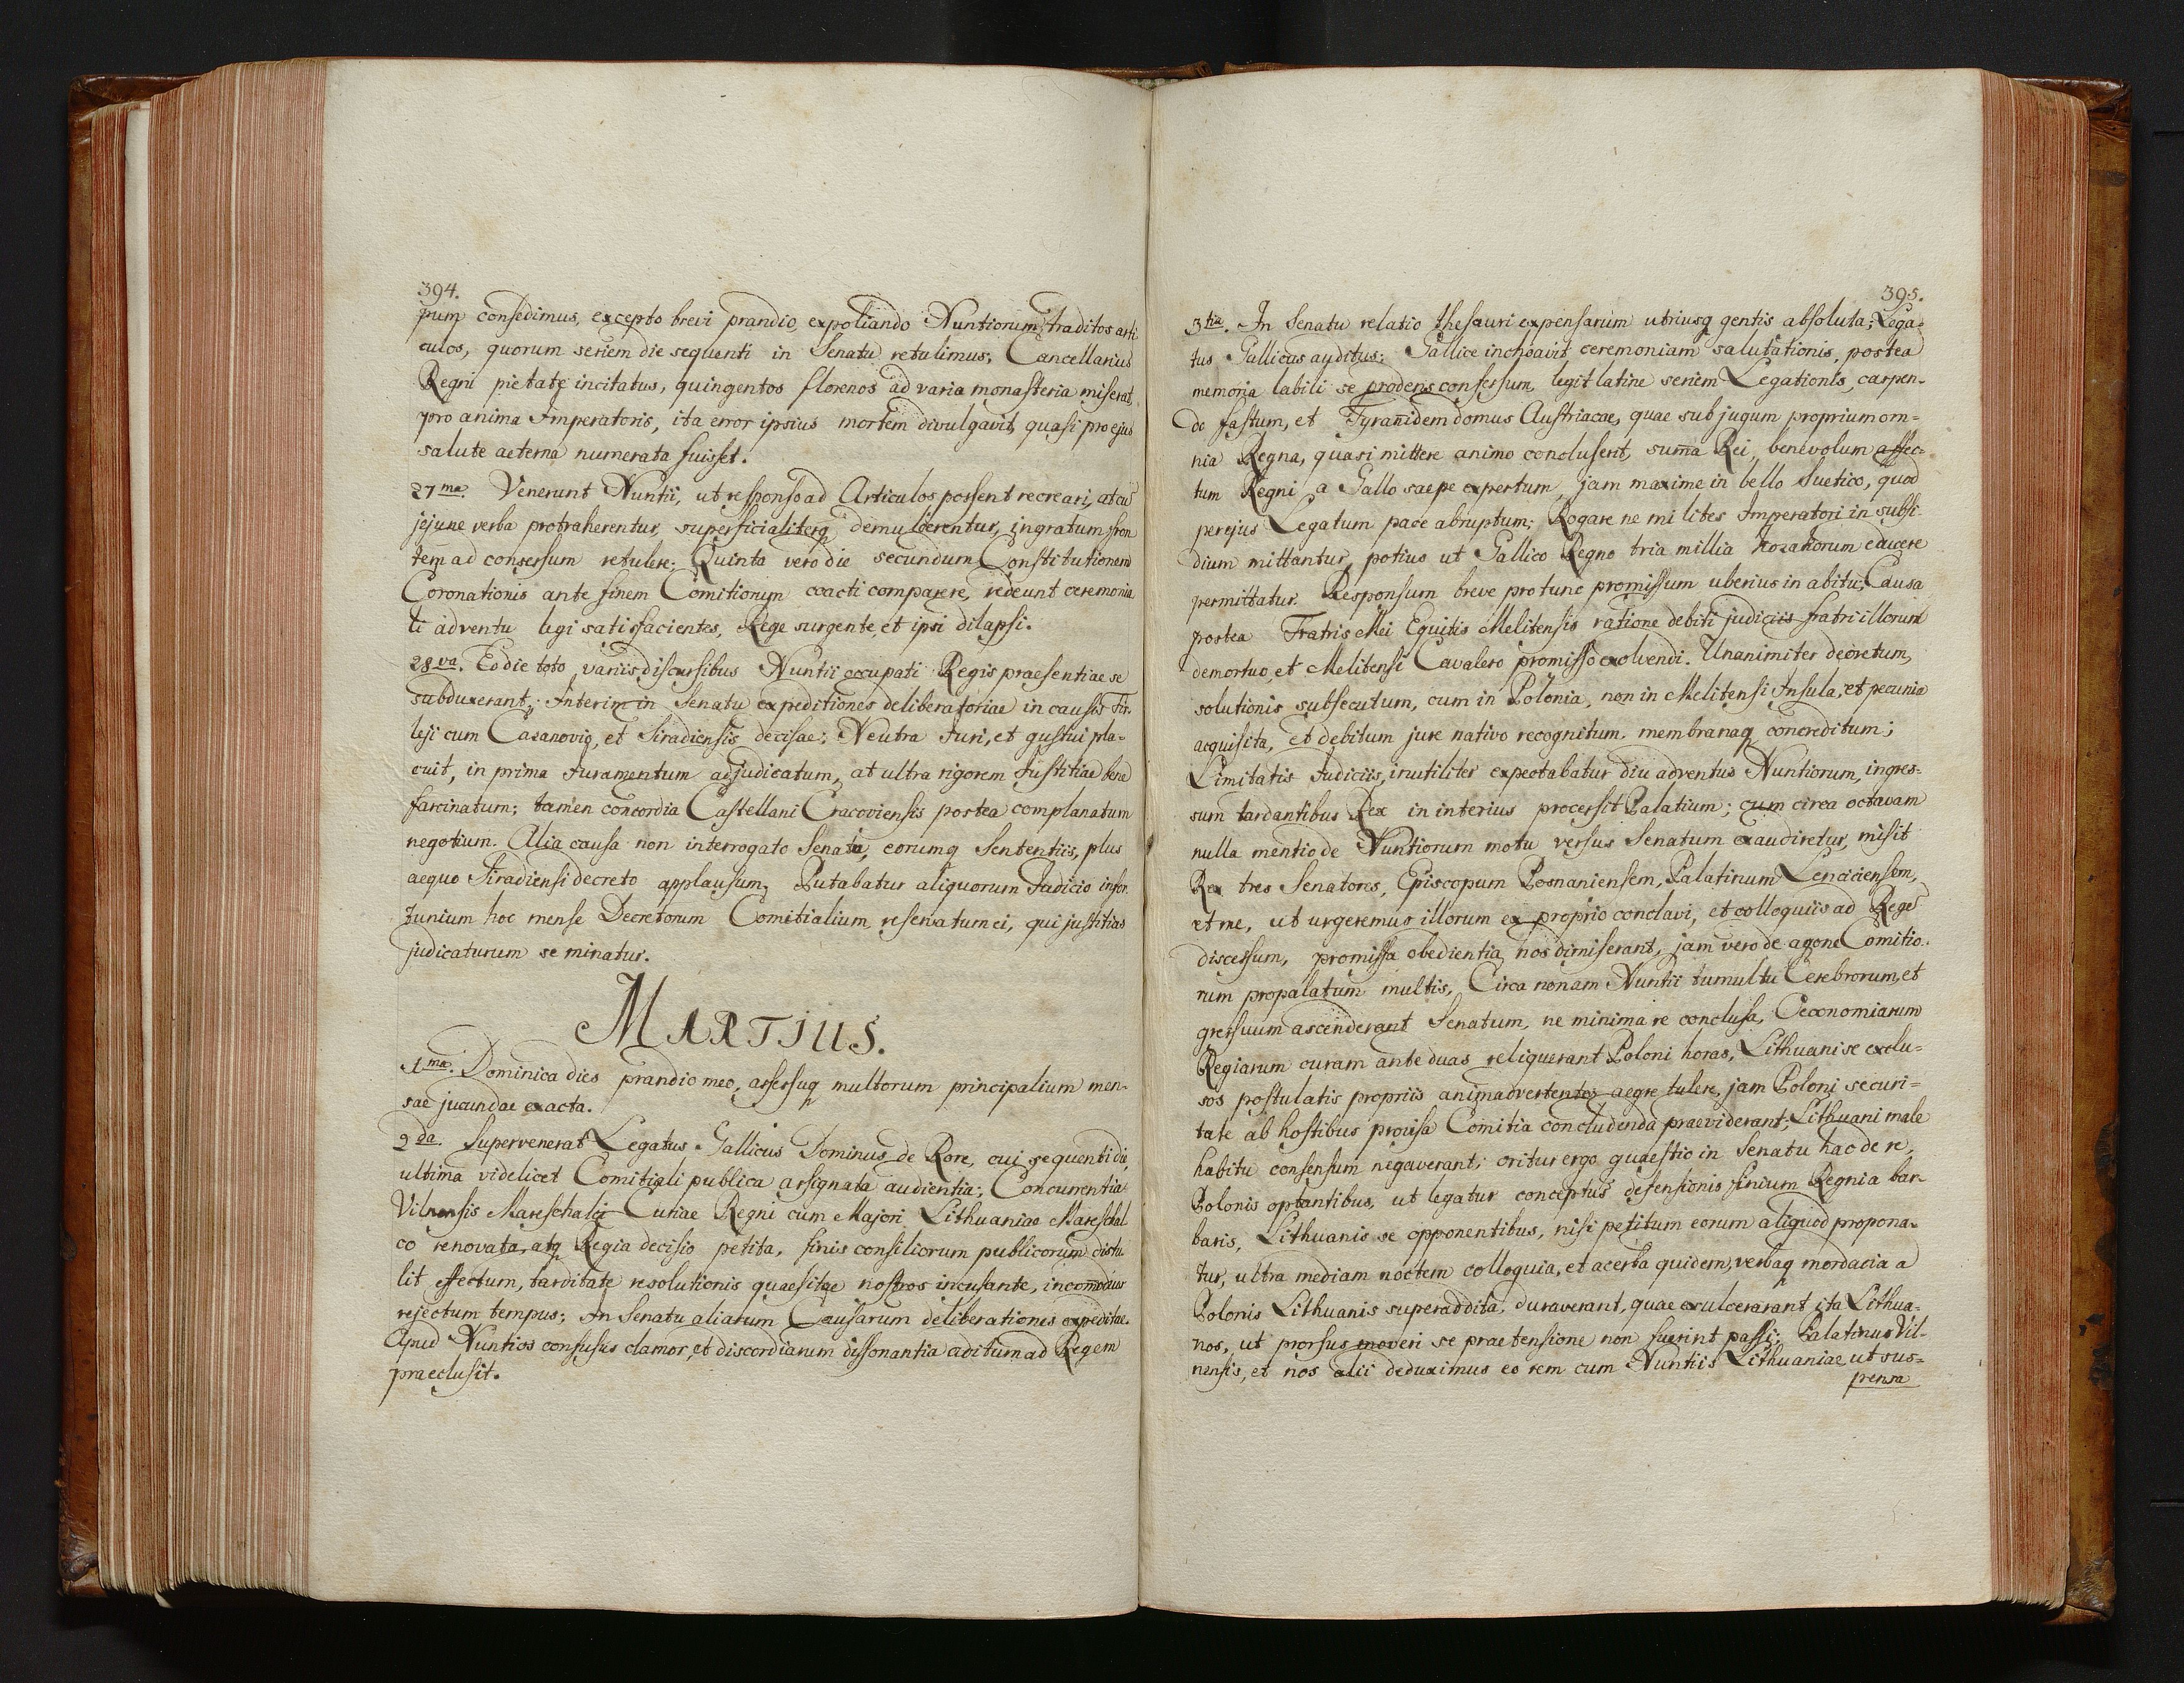 394.
pum consedimus, excepto brevi prandio, expoliando Nuntiorum traditos arti
culos, quorum seriem die sequenti in Senatu retulimus; Cancellarius
Regni pietate incitatus, quingentos florenos ad varia monasteria miserat
pro anima Imperatoris, ita error ipsius mortem divulgavit, quasi pro ejus
salute aeterna numerata fuisset.
27ma. Venerunt Nuntii, ut responso ad Articulos possent recreari, at cũ
jejune verba protraherentur, superficialiterq demulcerentur, ingratum fron
tem ad consessum retulere; Quinta vero die secundum Constitutionem
Coronationis ante finem Comitiorum coacti comparere, redeunt ceremonia
li adventu legi satisfacientes, Rege surgente, et ipsi dilapsi.
28va. Eo die toto variis discursibus Nuntii occupati Regis praesentiae se
subduxerant; Interim in Senatu expeditiones deliberatoriae in causis Fir
leji cum Cazanovio, et Siradiensis decisae; Neutra Juri, et gustui pla-
cuit, in prima Juramentum adjudicatum, at ultra rigorem Justitiae bene
farcinatum; tamen concordia Castellani Cracoviensis postea complanatum
negotium. Alia causa non interrogato Senatu, eorumq Sententiis, plus
aequo Siradiensi decreto applausum, Putabatur aliquorum Judicio infor
tunium hoc mense Decretorum Comitialium reservatum ei, qui justitias
judicaturum se minatur.
MARTIUS.
1ma. Dominica dies prandio meo, assessuq multorum principalium men-
sae jucundae exacta.
2da. Supervenerat Legatus Gallicus Dominus de Rore, cui sequenti die,
ultima videlicet Comitiali publica assignata audientia; Concurrentia
Vilnensis Mareschalci Curiae Regni cum Majori Lithuaniae Mareschal
co renovata, atq Regia decisio petita, finis consiliorum publicorum distu
lit effectum, tarditate resolutionis quaesitae nostros incusante, incomodius
rejectum tempus; In Senatu aliarum Causarum deliberationes expeditae.
Apud Nuntios confusus clamor, et discordiarum dissonantia aditum ad Regem
praeclusit.
395.
3tia. In Senatu relatio thesauri expensarum utriusq gentis absoluta; Lega-
tus Gallicus auditus; Gallice inchoavit ceremoniam salutationis, postea
memoria labili se prodens consessum, legit latine seriem Legationis, carpen-
do fastum, et Tyrañidem domus Austriacae, quae sub jugum proprium om-
nia Regna, quasi mittere animo concluserit, sum̃a Rei, benevolum affec-
tum Regni a Gallo saepe expertum, jam maxime in bello Suetico, quod
per ejus Legatum pace abruptum; Rogare ne milites Imperatori in subsi-
dium mittantur, potius ut Gallico Regno tria millia Kozakorum educere
permittatur. Responsum breve pro tunc promissum uberius in abitu; Causa
postea Fratris Mei Equitis Melitensis ratione debiti judiciis fratri illorum
demortuo, et Melitensi Cavalero promisso exolvendi. Unanimiter decretum,
solutionis subsecutum, cum in Polonia, non in Melitensi Insula, et pecunia
acquisita, et debitum jure nativo recognitum membranaq concreditum;
Limitatis Judiciis, inutiliter expectabatur diu adventus Nuntiorum, ingres-
sum tardantibus Rex in interius processit Palatium; cum circa octavam
nulla mentio de Nuntiorum motu versus Senatum exaudiretur, misit
Rex tres Senatores, Episcopum Posnaniensem, Palatinum Lenciciensem,
et me, ut urgeremus illorum ex proprio conclavi, et colloquiis ad Regẽ
discessum, promissa obedientia nos dimiserant, jam vero de agone Comitio-
rum propalatum multis, Circa nonam Nuntii tumultu Cerebrorum, et
gressuum ascenderant Senatum, ne minima re conclusa, Oeconomiarum
Regiarum curam ante duas reliquerant Poloni horas, Lithuani se exclu-
sos postulatis propriis animadvertentes aegre tulere, jam Poloni securi-
tate ab hostibus provisa Comitia concludenda praeviderant; Lithuani male
habitu consensum negaverant; oritur ergo quaestio in Senatu hac de re,
Polonis optantibus, ut legatur conceptus defensionis finium Regni a bar-
baris, Lithuanis se opponentibus, nisi petitum eorum aliquod propona-
tur, ultra mediam noctem colloquia, et acerba quidem, verbaq mordacia a
Polonis Lithuanis superaddita, duraverant, quae exulcerarant ita Lithua-
nos, ut prorsus moveri se praetensione non fuerint passi; Palatinus Vil-
nensis, et nos alii deduximus eo rem cum Nuntiis Lithuaniae ut sus-
pensa